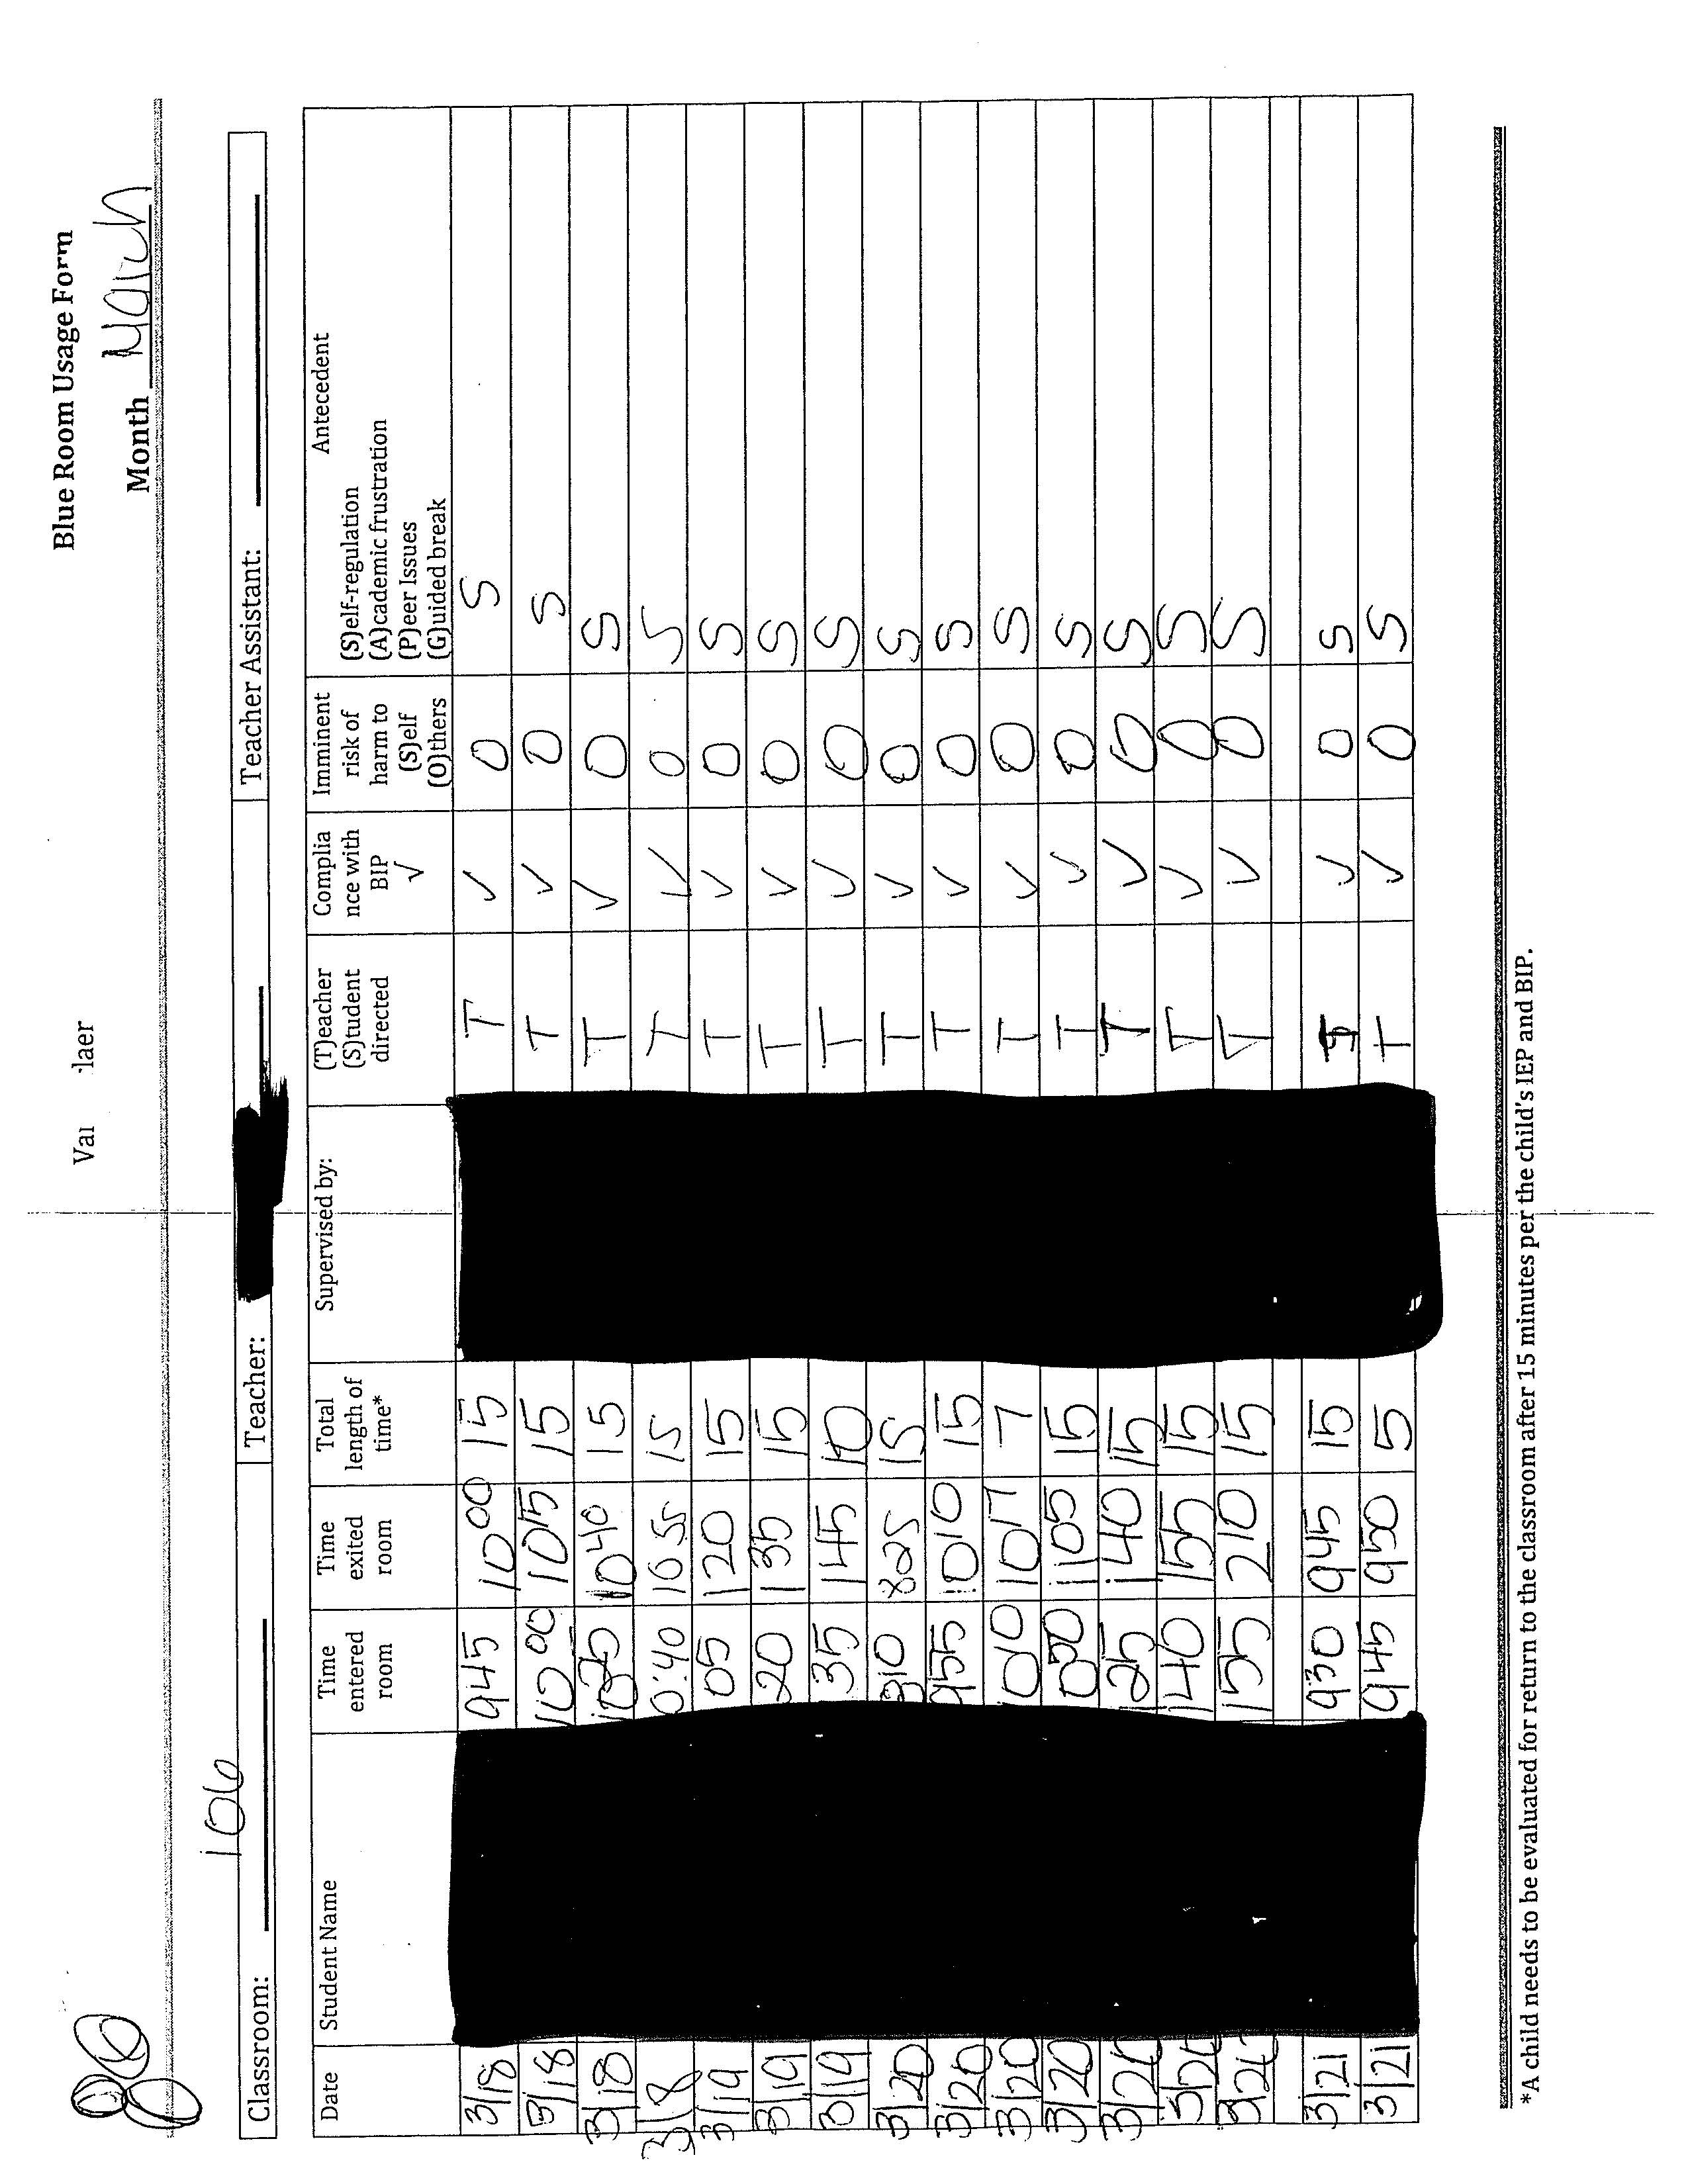 Blue Room Usage Form
Month March
106
Classroom: Teacher: Teacher Assistant:
Date Student Name Time entered room Time exited room Total length of time* Supervised by: (T)eacher (S)tudent directed Complia nce with BIP √ Imminent risk of harm to (S)elf (O)thers Antecedent (S)elf-regulation (A)cademic frustration (P)eer Issues (G)uided break
3/18 945 1000 15 T √ O S
3/18 1000 1015 15 T √ O S
3/18 1025 1040 15 T √ O S
3/18 0:40 1055 15 T √ O S
3/19 05 120 15 T √ O S
3/19 20 135 15 T √ O S
3/19 35 145 10 T √ O S
3/20 810 825 15 T √ O S
3/20 955 1010 15 T √ O S
3/20 1010 1017 7 T √ O S
3/20 1050 1105 15 T √ O S
3/20 125 140 15 T √ O S
3/20 140 155 15 T √ O S
3/20 155 210 15 T √ O S
3/21 930 945 15 T √ O S
3/21 945 950 5 T √ O S
*A child needs to be evaluated for return to the classroom after 15 minutes per the child's IEP and BIP.